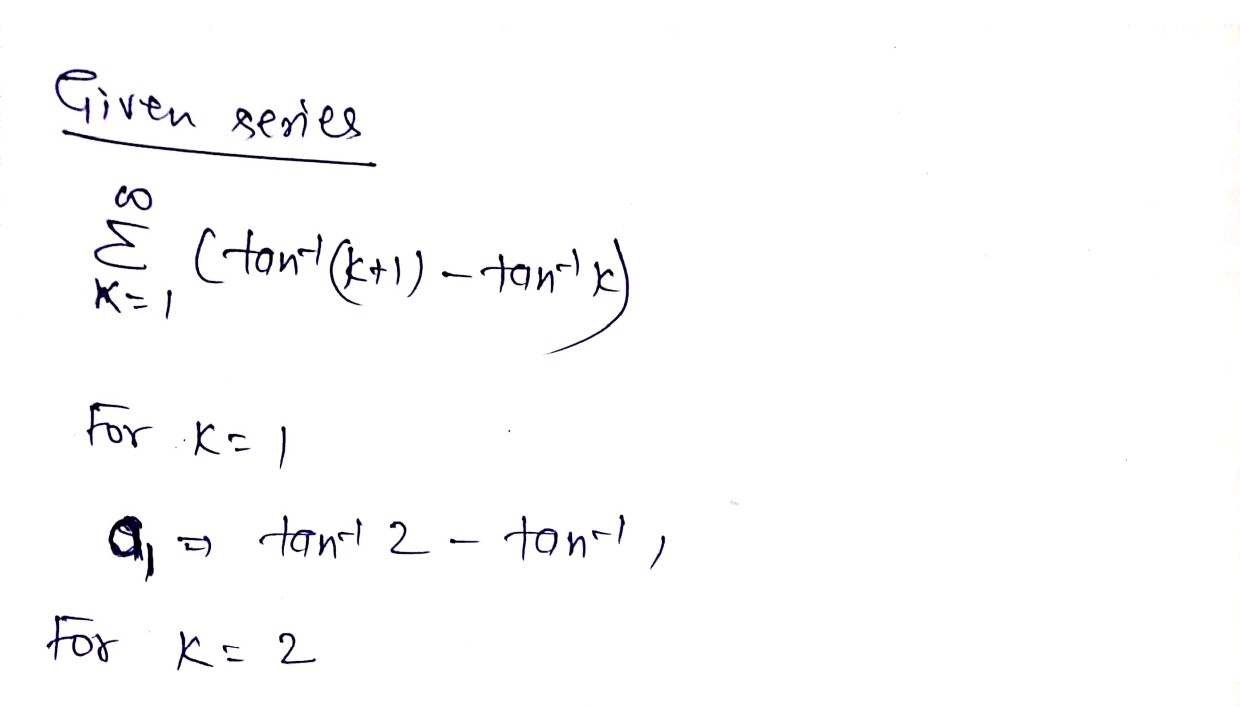 Given series
∞
Σ (tan⁻¹(k+1) - tan⁻¹ k)
K=1
For K=1
a₁ ⇒ tan⁻¹ 2 - tan⁻¹ 1
For K=2